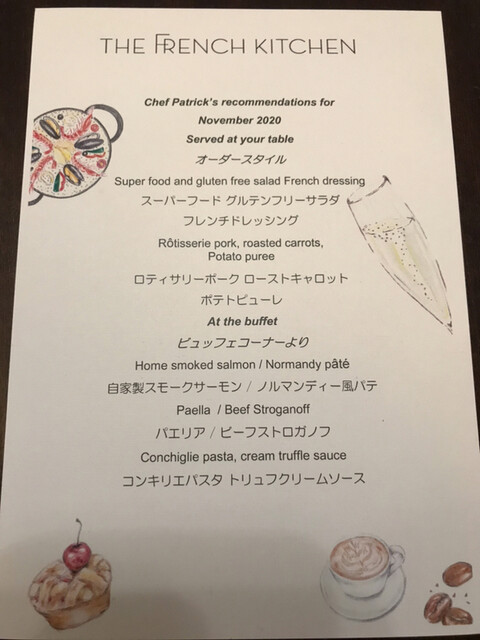 THE FRENCH KITCHEN
Chef Patrick's recommendations for
November 2020
Served at your table
オーダースタイル
Super food and gluten free salad French dressing
スーパーフード グルテンフリーサラダ
フレンチドレッシング
Rôtisserie pork, roasted carrots,
Potato puree
ロティサリーポーク ローストキャロット
ポテトピューレ
At the buffet
ビュッフェコーナーより
Home smoked salmon / Normandy pâté
自家製スモークサーモン / ノルマンディー風パテ
Paella / Beef Stroganoff
パエリア / ビーフストロガノフ
Conchiglie pasta, cream truffle sauce
コンキリエパスタ トリュフクリームソース